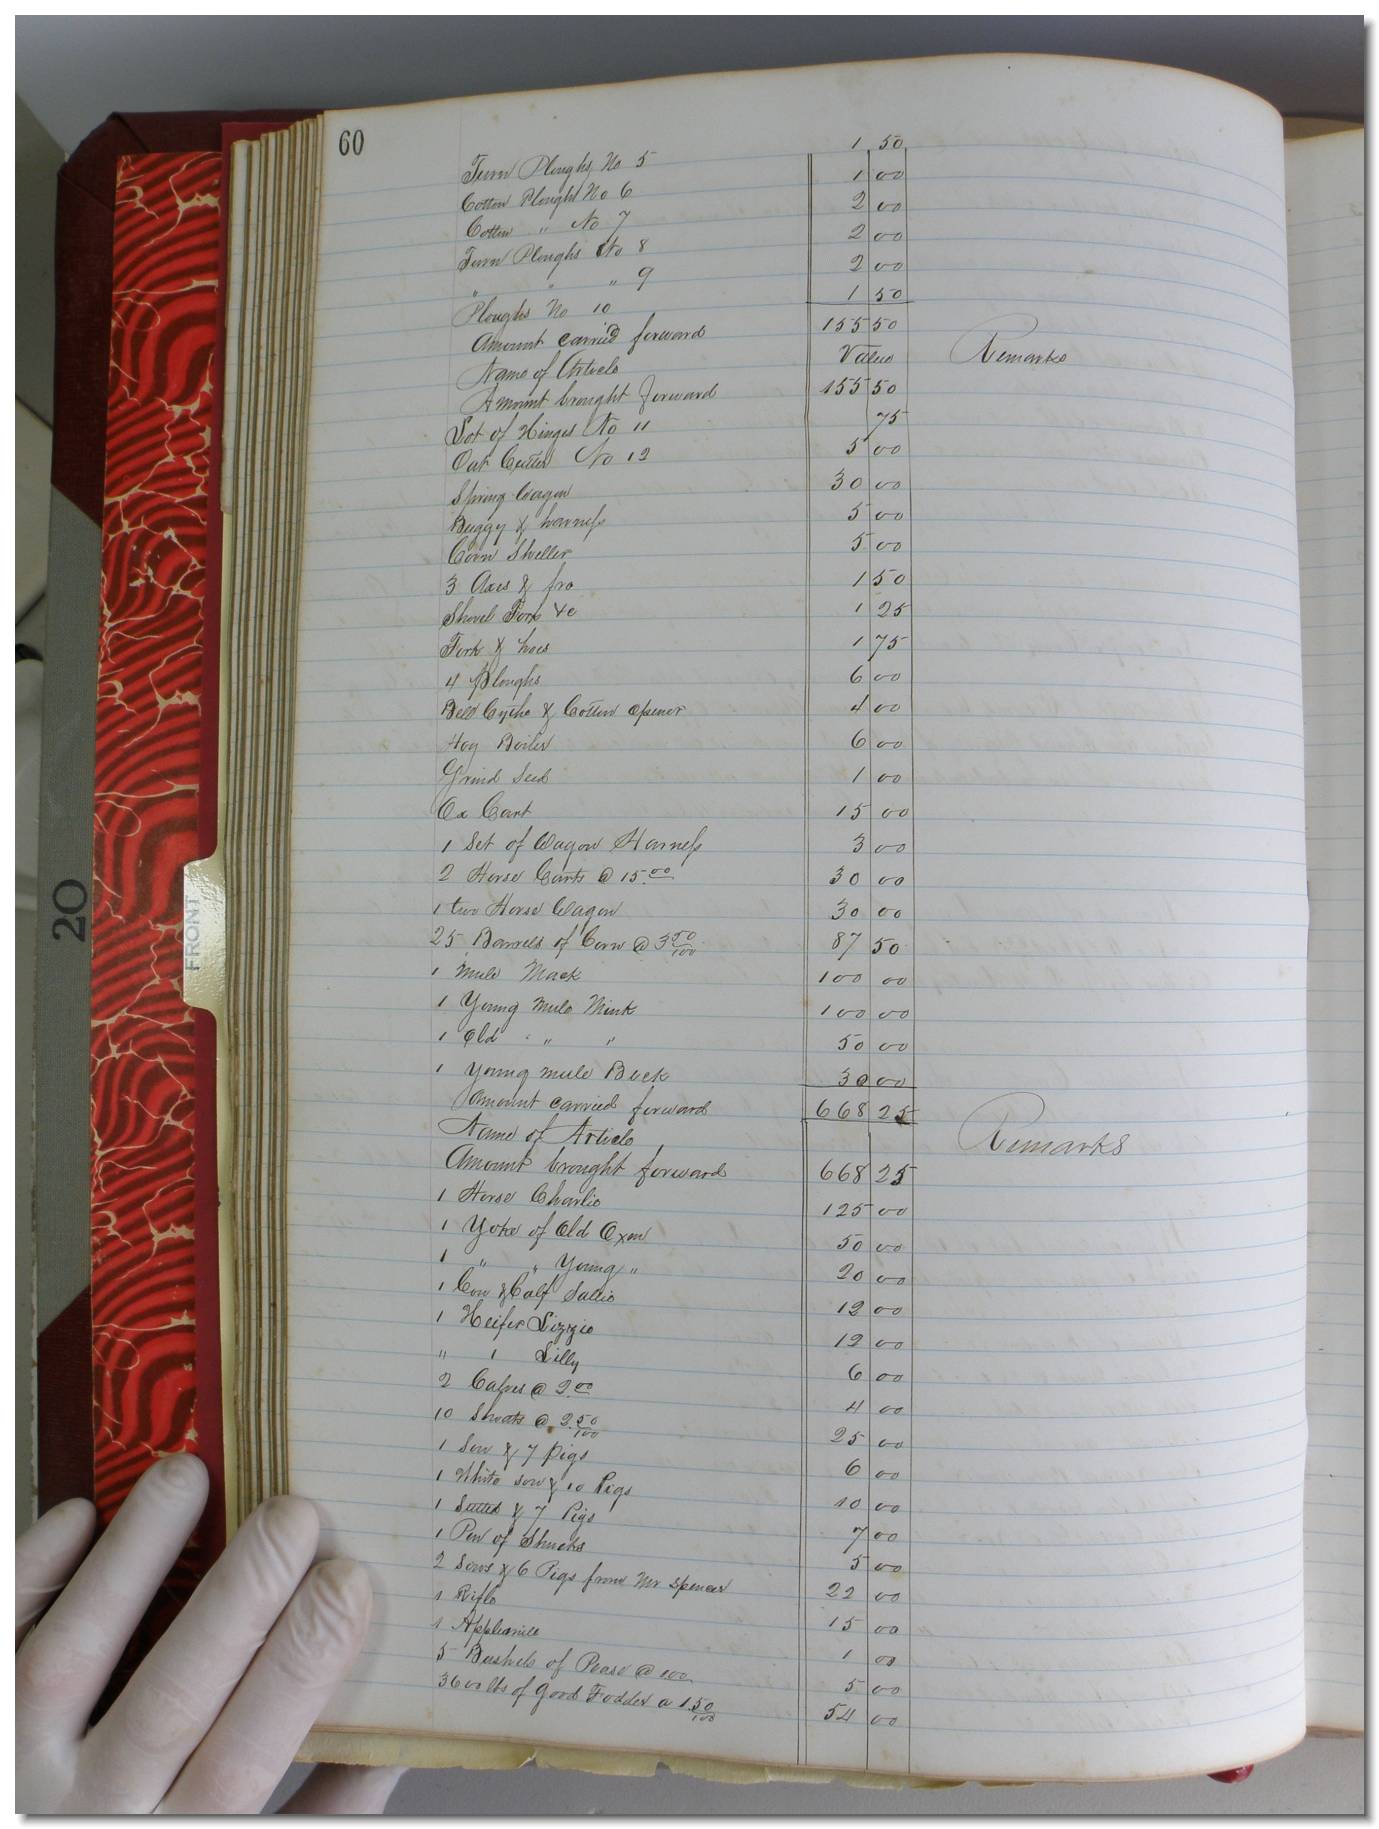 60
1 50
Turn Ploughs No 5 1 00
Cotton Plough No 6 2 00
Cotton " No 7 2 00
Turn Ploughs No 8 2 00
" " " 9 1 50
Ploughs No 10
Amount carried forward 155 50
Name of Article Value Remarks
Amount brought forward 155 50
Lot of Hinges No 11 75
Oat Cutter No 12 5 00
Spring Wagon 30 00
Buggy & harness 5 00
Corn Sheller 5 00
3 Axes & fro 1 50
Shovel Fork &c 1 25
Fork & hoes 1 75
4 Ploughs 6 00
Bell & Cotton opener 4 00
Hog Boiler 6 00
Grind 1 00
Ox Cart 15 00
1 Set of Wagon Harness 3 00
2 Horse Carts @ 15.00 30 00
1 two Horse Wagon 30 00
25 Barrels of Corn @ 3 50/100 87 50
1 Mule Mack 100 00
1 Young Mule Mink 100 00
1 Old " " 50 00
1 Young mule Buck 30 00
Amount carried forward 668 25
Name of Article Remarks
Amount brought forward 668 25
1 Horse Charlie 125 00
1 Yoke of Old Oxen 50 00
1 " " Young " 20 00
1 Cow & Calf Sallie 12 00
1 Heifer Lizzie 12 00
" 1 Lilly 6 00
2 Calves @ 2.00 4 00
10 Shoats @ 2.50/100 25 00
1 Sow & 7 Pigs 6 00
1 White sow & 10 Pigs 10 00
1 & 7 Pigs 7 00
1 Pen of Shucks 5 00
2 Sows & 6 Pigs from Mr Spencer 22 00
1 Rifle 15 00
1 1 00
5 Bushels of Pease @ 100 5 00
3600 lbs of Good Fodder a 1.50/100 54 00
FRONT
20